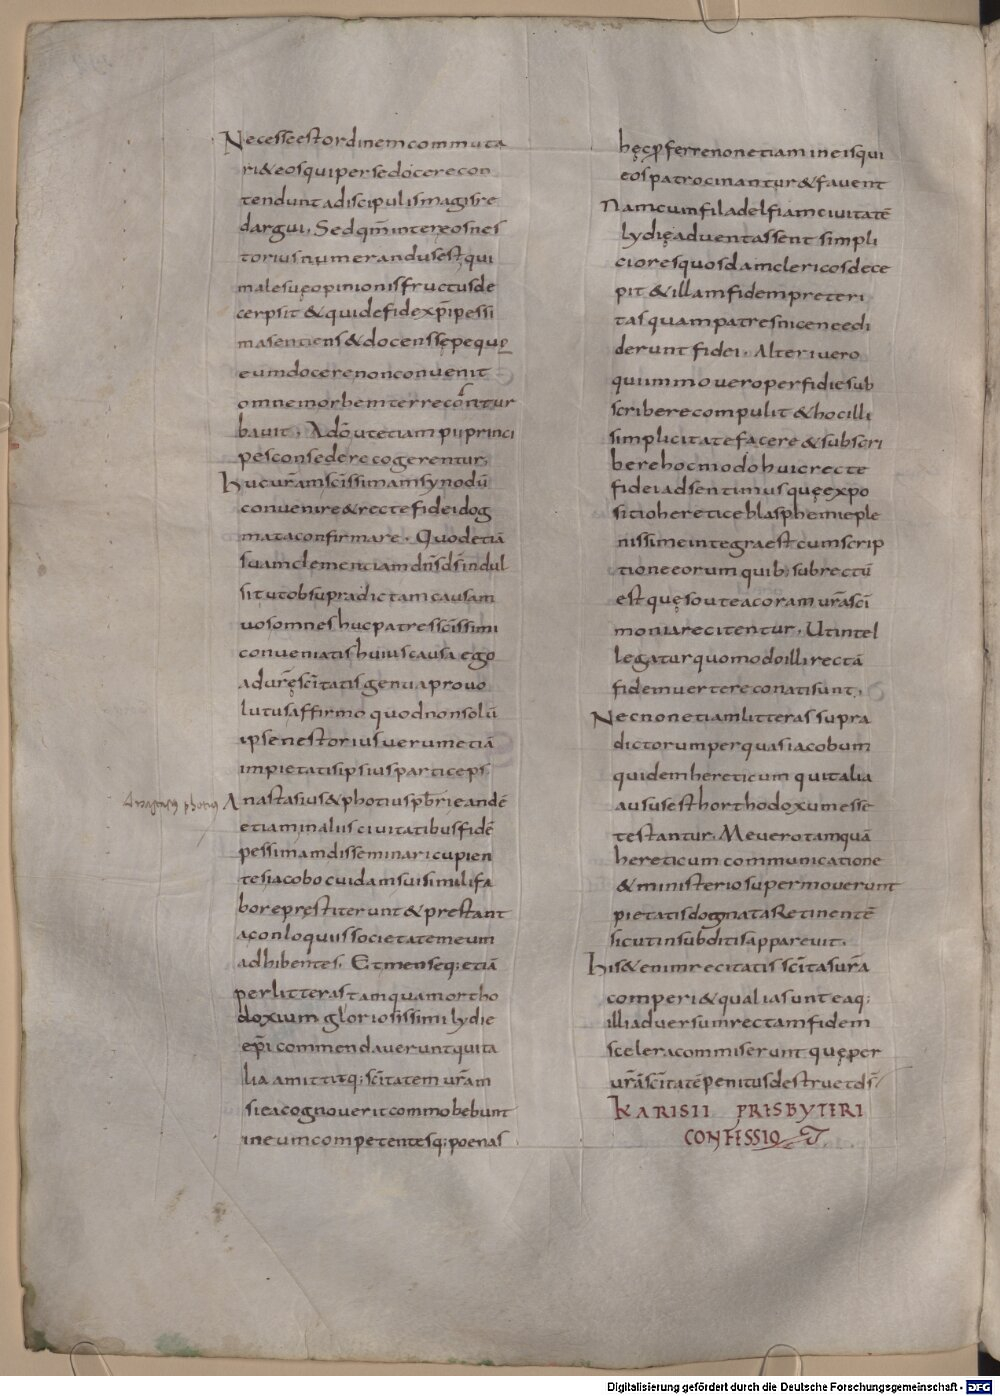 Necesse est ordinem commuta
ri & eos qui per se docere con
tendunt a discipulis magis re
dargui. Sed qm̄ inter eos nes
torius numerandus est qui
male suę opinionis fructus de
cerpsit & qui de fide xp̄i pessi
ma sentiens & docens sępe quę
eum docere non convenit
omnem orbem terre contur
bavit. Ad ō ut etiam pii princi
pes consedere cogerentur.
huc ur̄am sc̄issimam synodū
convenire & recte fidei dog
mata confirmare. Quod etiā
suam clementiam dn̄s d̄s indul
sit ut ob supra dictam causam
vos omnes huc patres sc̄issimi
conveniatis huius causa ego
ad ur̄ę sc̄itatis genua provo
lutus affirmo quod non solū
ipse nestorius verum etiā
impietatis ipsius particeps
Anastasius & photius pb̄ri eandē
etiam in aliis civitatibus fidē
pessimam disseminari cupien
tes iacobo cuidam sui simili fa
bore pręstiterunt & prestant
ac onloquiis societatem eum
adhibentes. Et menseq; etiā
per litteras tamquam ortho
doxium gloriosissimi lydie
ep̄i commendaverunt qui ta
lia amittitq; sc̄itatem ur̄am
si ea cognoverit commobebunt
in eum competentesq; poenas
hęc p̄ferre non etiam in eis qui
eos patrocinantur & favent
Nam cum filadelfiam civitatē
lydię adventassent simpli
ciores quosdam clericos dece
pit & illam fidem preteri
tas quam patres niceni edi
derunt fidei. Alteri vero
qui immo vero perfidie sub
scribere compulit & hoc illi
simplicitate facere & subscri
bere hoc modo huic recte
fidei adsentimus quę expo
sitio heretice blasphemie ple
nissime integra est cum scrip
tione eorum quib; subrectū
est quęso ut ea coram ur̄a sc̄i
monia recitentur. Ut intel
legatur quomodo illi rectā
fidem vertere conati sunt.
Nec non etiam litteras supra
dictorum per quas iacobum
quidem hereticum qui talia
ausus est horthodoxum esse
testantur. Me vero tamquā
hereticum communicatione
& ministerio supermoverunt
pietatis dogmata Retinentē
sicut in subditis apparevit.
his & enim recitatis sc̄itas ur̄a
comperi & qualia sunt eaq;
illi adversum rectam fidem
scelera commiserunt quę per
ur̄ā sc̄itatē penitus destruet d̄s
KARISII PRESBYTERI
CONFESSIO
Digitalisierung gefördert durch die Deutsche Forschungsgemeinschaft - DFG